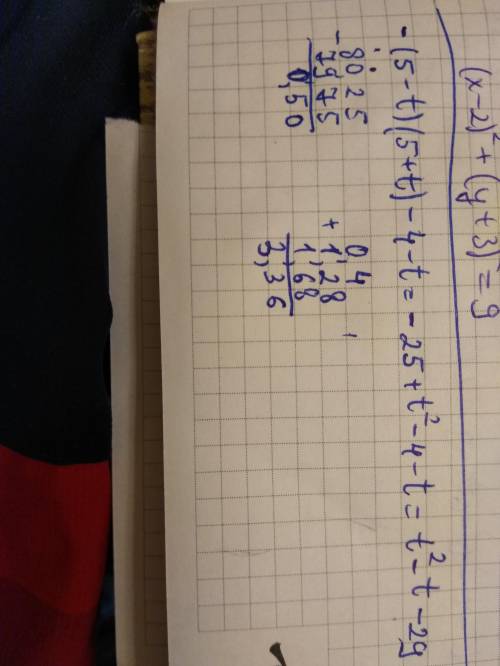 (x-2)² + (y+3) = 9
-(5-t)(5+t)-4-t = -25+t²-4-t = t²-t-29
- 8025
7975
0,50
0,4
+ 1,28
1,68
3,36